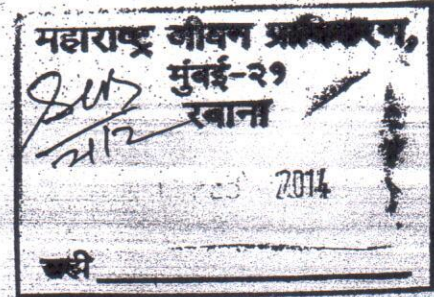 महाराष्ट्र जीवन प्राधिकरण,
मुंबई-२१
रवाना
2014
सही